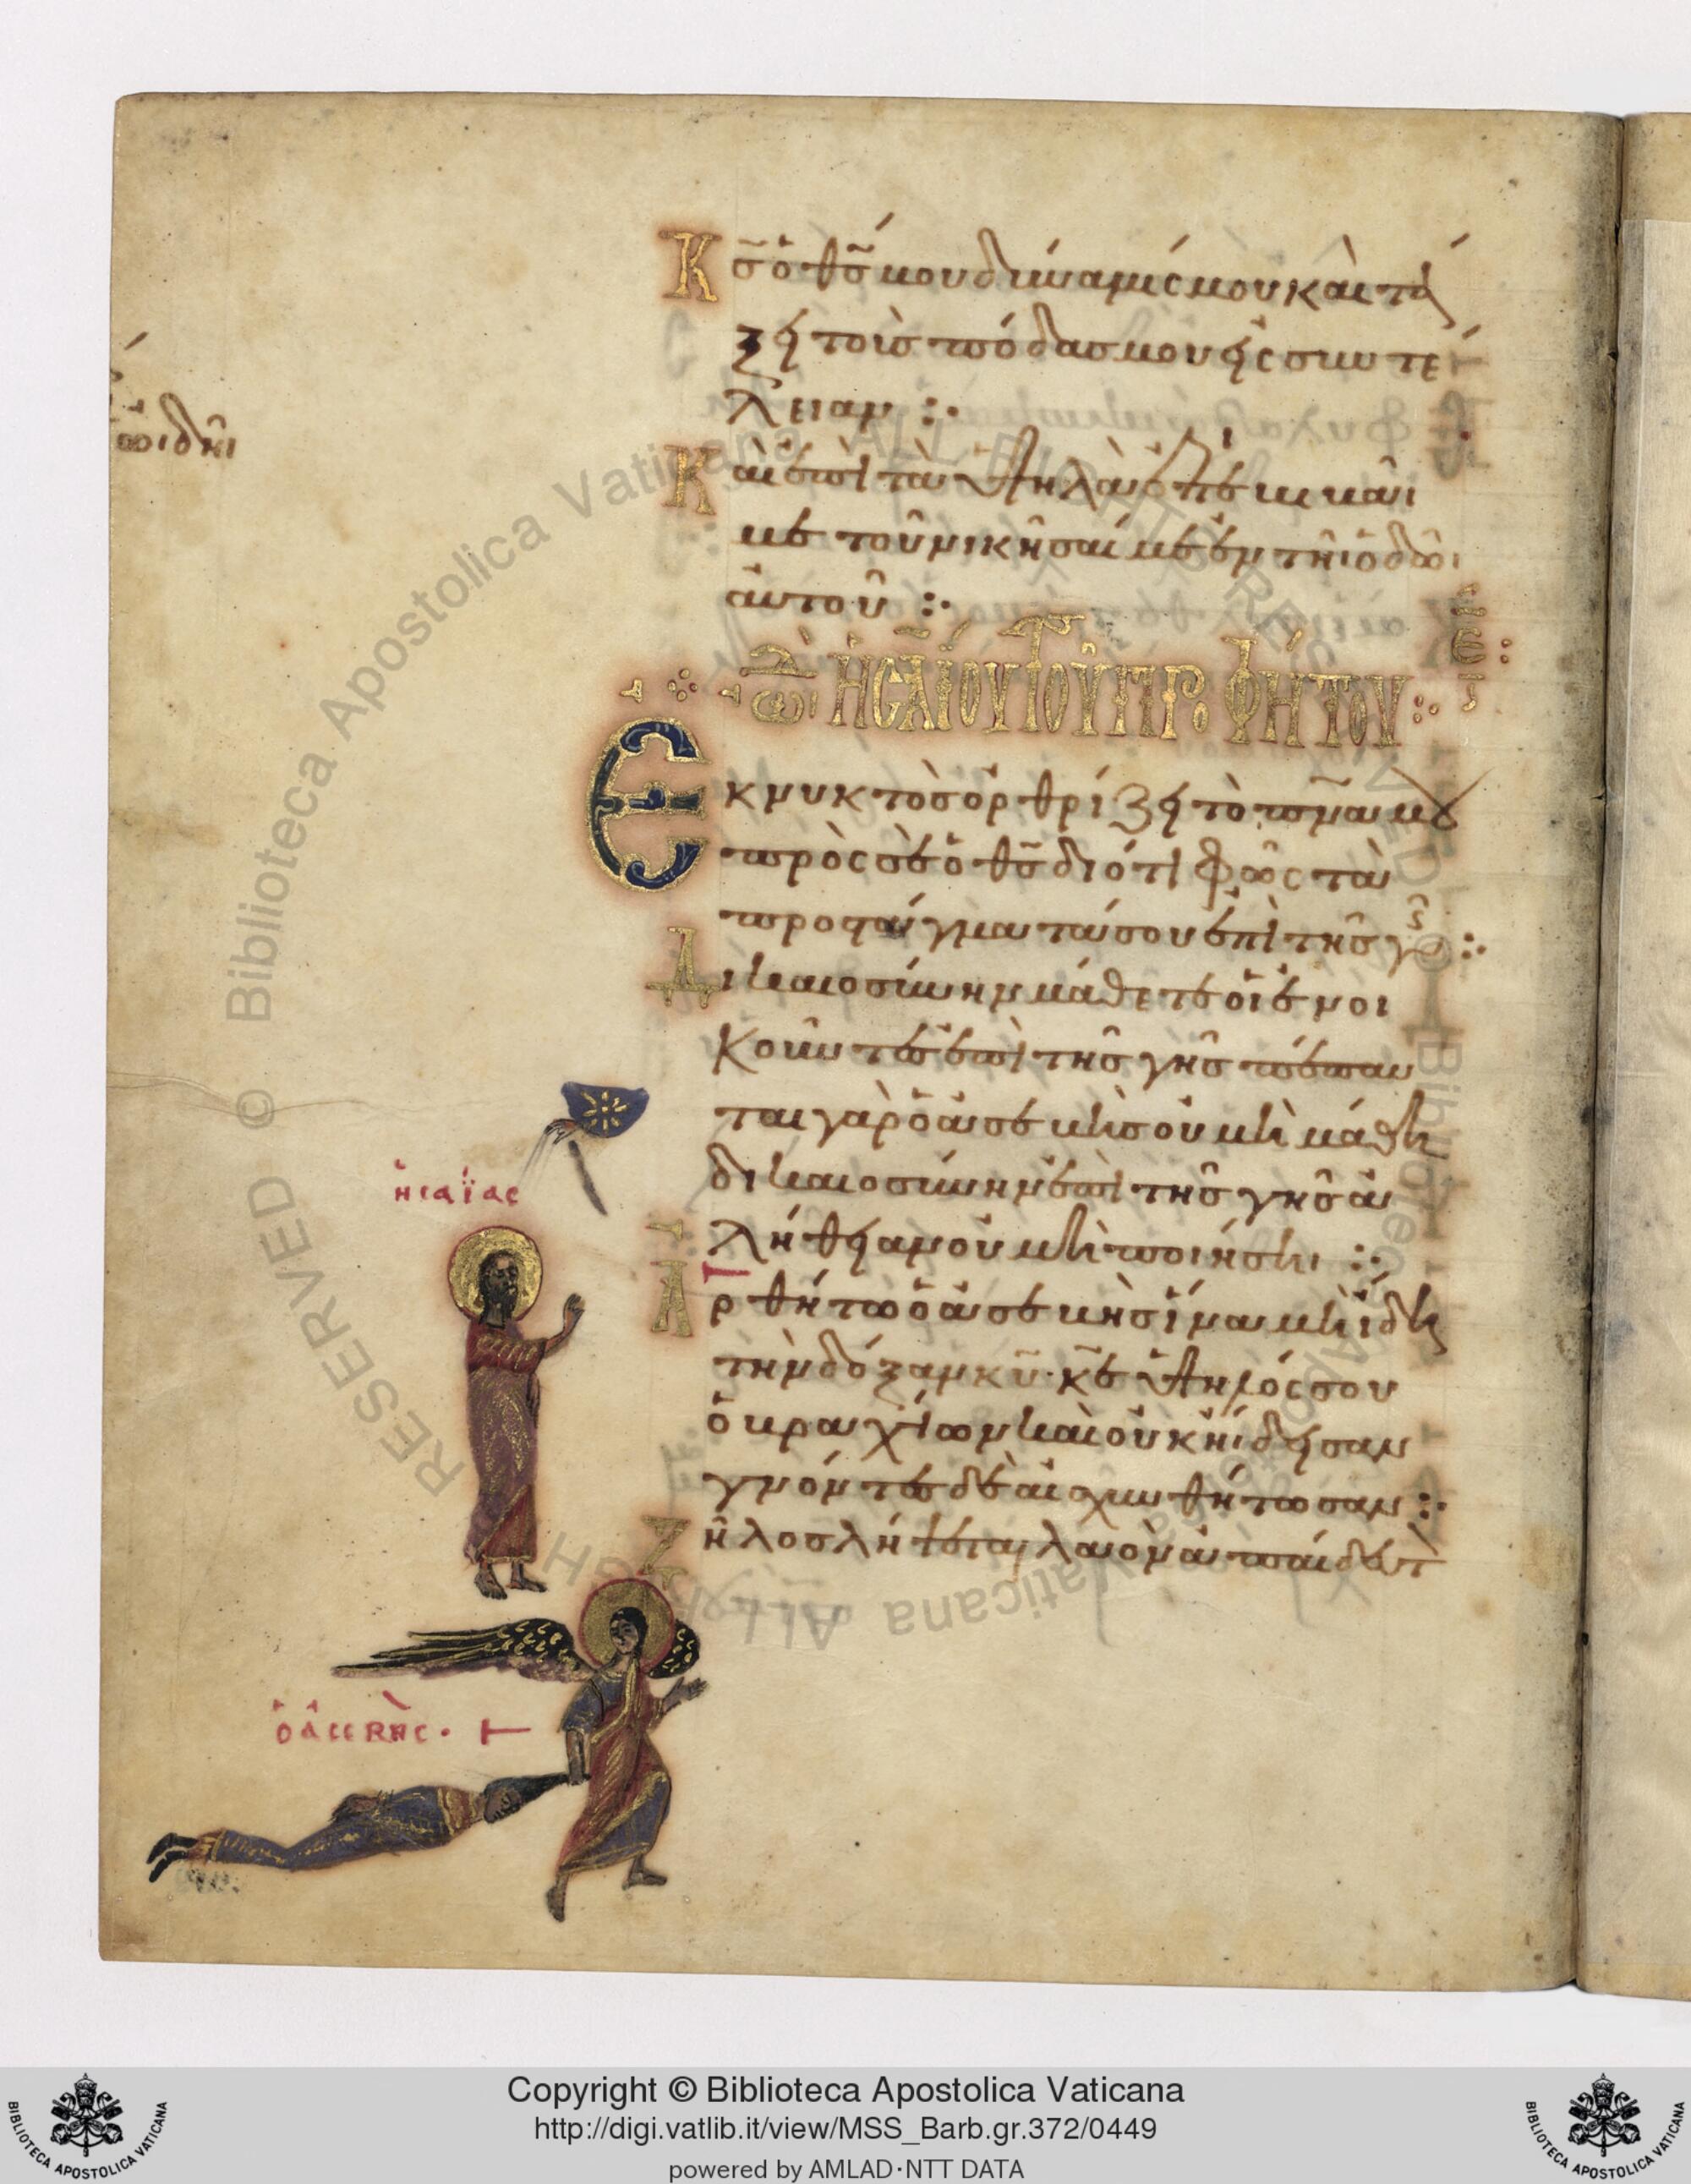 Κ̅σ̅ ὁ θ̅σ̅ μου δύναμίς μου καὶ τά
ξει τοὺς πόδας μου εἰς συντέ
λειαν :·
Καὶ ἐπὶ τὰ ὑψηλὰ ἐπιβιβᾶι
με τοῦ νικῆσαί με ἐν τῆι ὁδῶι
αὐτοῦ :·
ὠδὴ ἡσαΐου τοῦ προφήτου :· ε
Ἐκ νυκτὸς ὀρθρίζει τὸ π̅ν̅α̅ μου
πρὸς σὲ ὁ θ̅σ̅ διότι φῶς τὰ
προστάγματά σου ἐπὶ τῆς γῆς :·
Δικαιοσύνην μάθετε οἱ ἐνοι
κοῦντες ἐπὶ τῆς γῆς πέπαυ
ται γὰρ ὁ ἀσεβὴς οὐ μὴ μάθη
δικαιοσύνην ἐπὶ τῆς γῆς ἀ
λήθειαν οὐ μὴ ποιήσηι :·
Ἀρθήτω ὁ ἀσεβὴς ἵνα μὴ ἴδη
τὴν δόξαν κ̅υ̅· κ̅ε̅ ὑψηλός σου
ὁ βραχίων καὶ οὐκ ἤιδεισαν
γνόντες δὲ αἰσχυνθήτωσαν :·
Ζῆλος λήψεται λαὸν ἀπαίδευτ
ωιδῆι
ἡσαΐας
ὁ ἀσεβὴς·
© Biblioteca Apostolica Vaticana ALL RIGHTS RESERVED
Copyright © Biblioteca Apostolica Vaticana
http://digi.vatlib.it/view/MSS_Barb.gr.372/0449
powered by AMLAD·NTT DATA
BIBLIOTECA APOSTOLICA VATICANA
BIBLIOTECA APOSTOLICA VATICANA